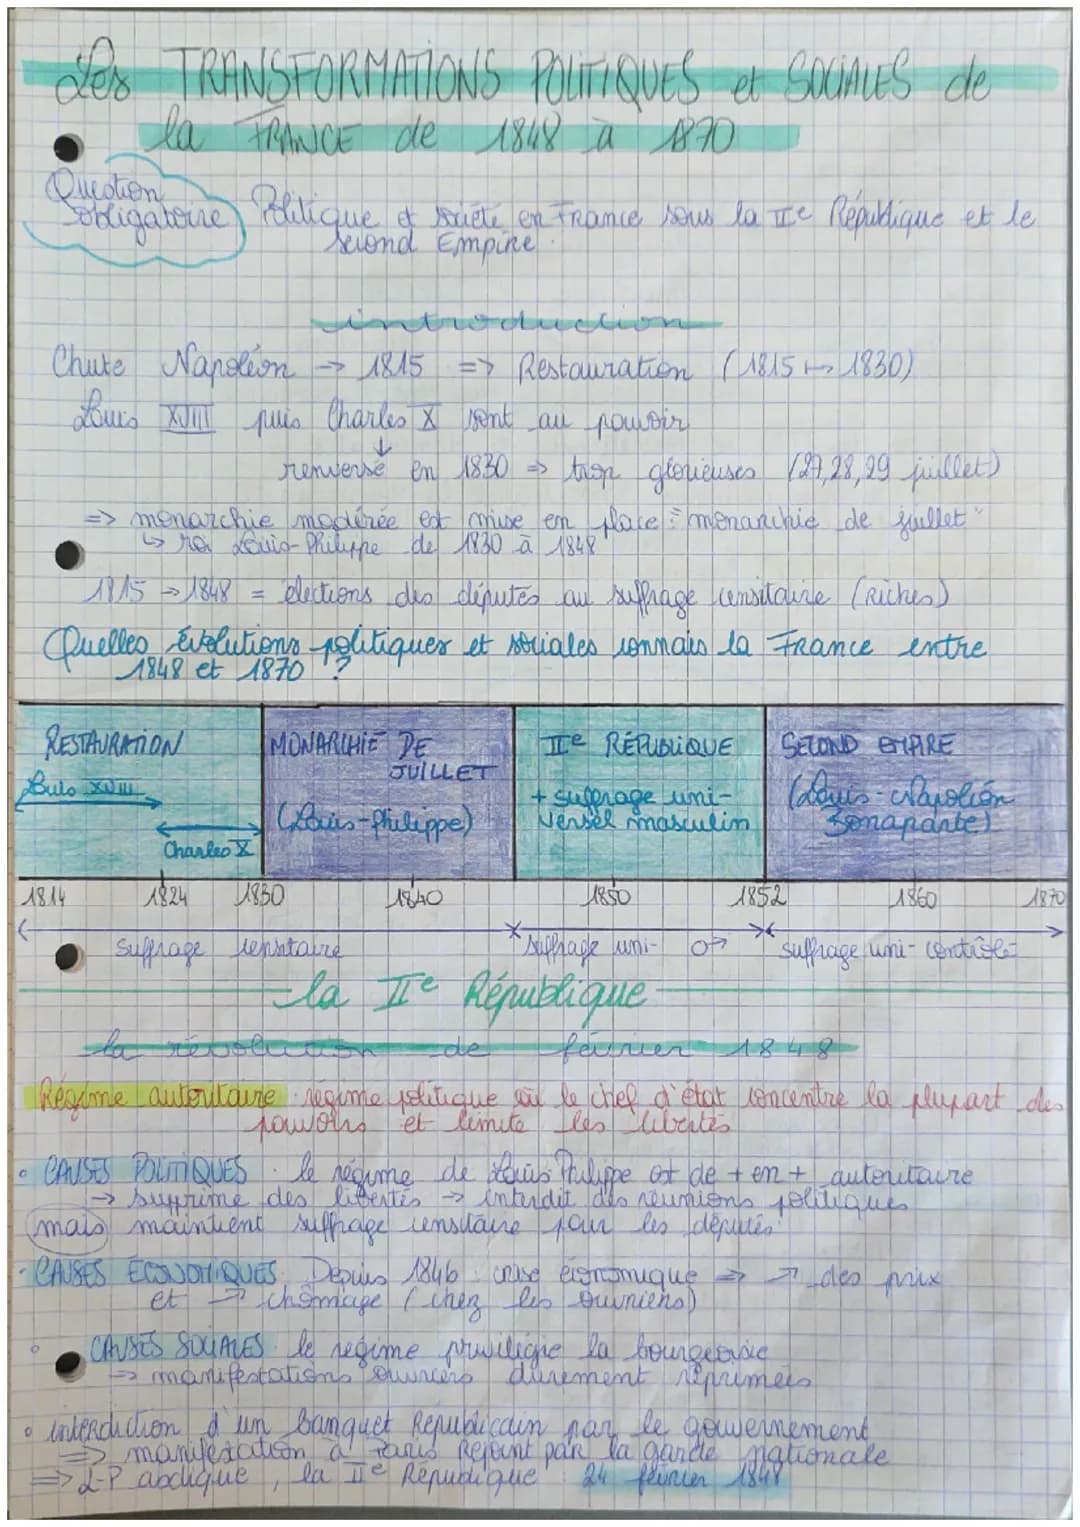 Les TRANSFORMATIONS POLITIQUES et SOCIALES de
la FRANCE de 1848 à 1870
Question
obligatoire
Politique et société en France sous la IIe République et le
second Empire.
introduction
Chute Napoléon → 1815 => Restauration (1815 ↦ 1830)
Louis XVIII puis Charles X sont au pouvoir
↓
renversé en 1830 => trop glorieuses (27, 28, 29 juillet)
=> monarchie modérée est mise en place : "monarchie de juillet"
↳ roi Louis-Philippe de 1830 à 1848
1815 → 1848 = élections des députés au suffrage censitaire (Riches)
Quelles évolutions politiques et sociales connais la France entre
1848 et 1870 ?
RESTAURATION
Louis XVIII
Charles X
MONARCHIE DE
JUILLET
(Louis-Philippe)
IIe RÉPUBLIQUE
+ suffrage uni-
versel masculin
SECOND EMPIRE
(Louis-Napoléon
Bonaparte)
1814 1824 1830 1840 1850 1852 1860 1870
suffrage censitaire
suffrage uni- ♂
suffrage uni- contrôlé
la IIe République
la révolution de février 1848
Régime autoritaire : régime politique où le chef d'état concentre la plupart des
pouvoirs et limite les libertés
• CAUSES POLITIQUES : le régime de Louis Philippe est de + en + autoritaire
→ supprime des libertés → interdit des réunions politiques
mais maintient suffrage censitaire pour les députés
• CAUSES ÉCONOMIQUES : Depuis 1846 : crise économique => ↗ des prix
et ↗ chômage (chez les ouvriers)
• CAUSES SOCIALES : le régime privilégie la bourgeoisie
=> manifestations ouvriers durement réprimées
• interdiction d'un banquet Républicain par le gouvernement
=> manifestation à Paris Rejoint par la garde nationale
=> L-P abdique, la IIe République : 24 février 1848